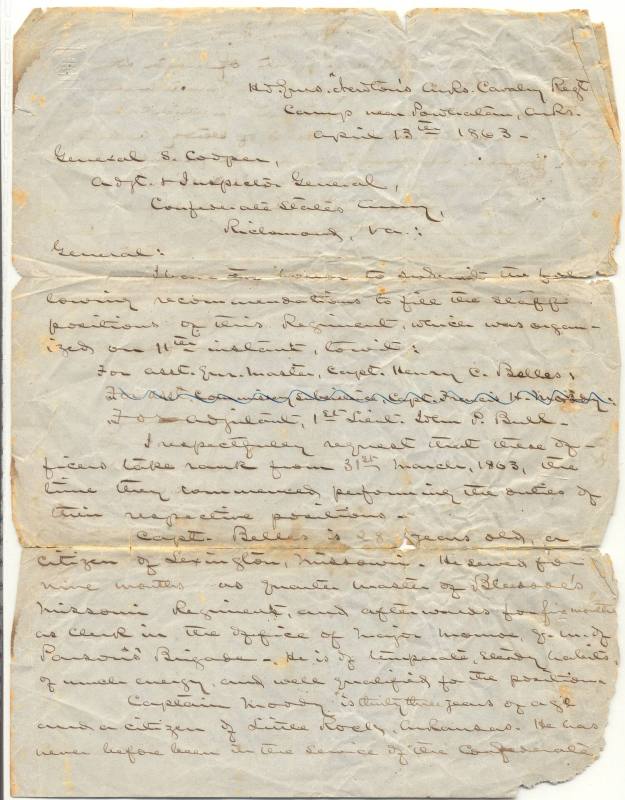 Hd. Qurs. Newton's Arks. Cavalry Regt
Camp near Powhatan, Arks.
April 13th 1863.
General S. Cooper,
Adjt. & Inspector General,
Confederate States Army,
Richmond, Va.:
General:
I have the honor to submit the fol-
lowing recommendations to fill the staff
positions of this Regiment, which was organ-
ized on 11th instant, towit:
For asst. Qur. Master, Capt. Henry C. Belles;
For Asst Commissary Capt. H. Moody.
For adjutant, 1st Lieut. John P. Bull.
I respectfully request that these of-
ficers take rank from 31st March, 1863, the
time they commenced performing the duties of
their respective positions.
Capt. Belles is 28 years old, a
citizen of Lexington, Missouri. He served for
nine months as quarter master of Bledsoe's
Missouri Regiment, and afterwards for months
as clerk in the office of Major Monroe, Q. M. of
Parsons' Brigade. He is of temperate, steady habits,
of much energy, and well qualified for the position.
Captain Moody is thirty three years of age
and a citizen of Little Rock, Arkansas. He has
never before been in the service of the Confederate